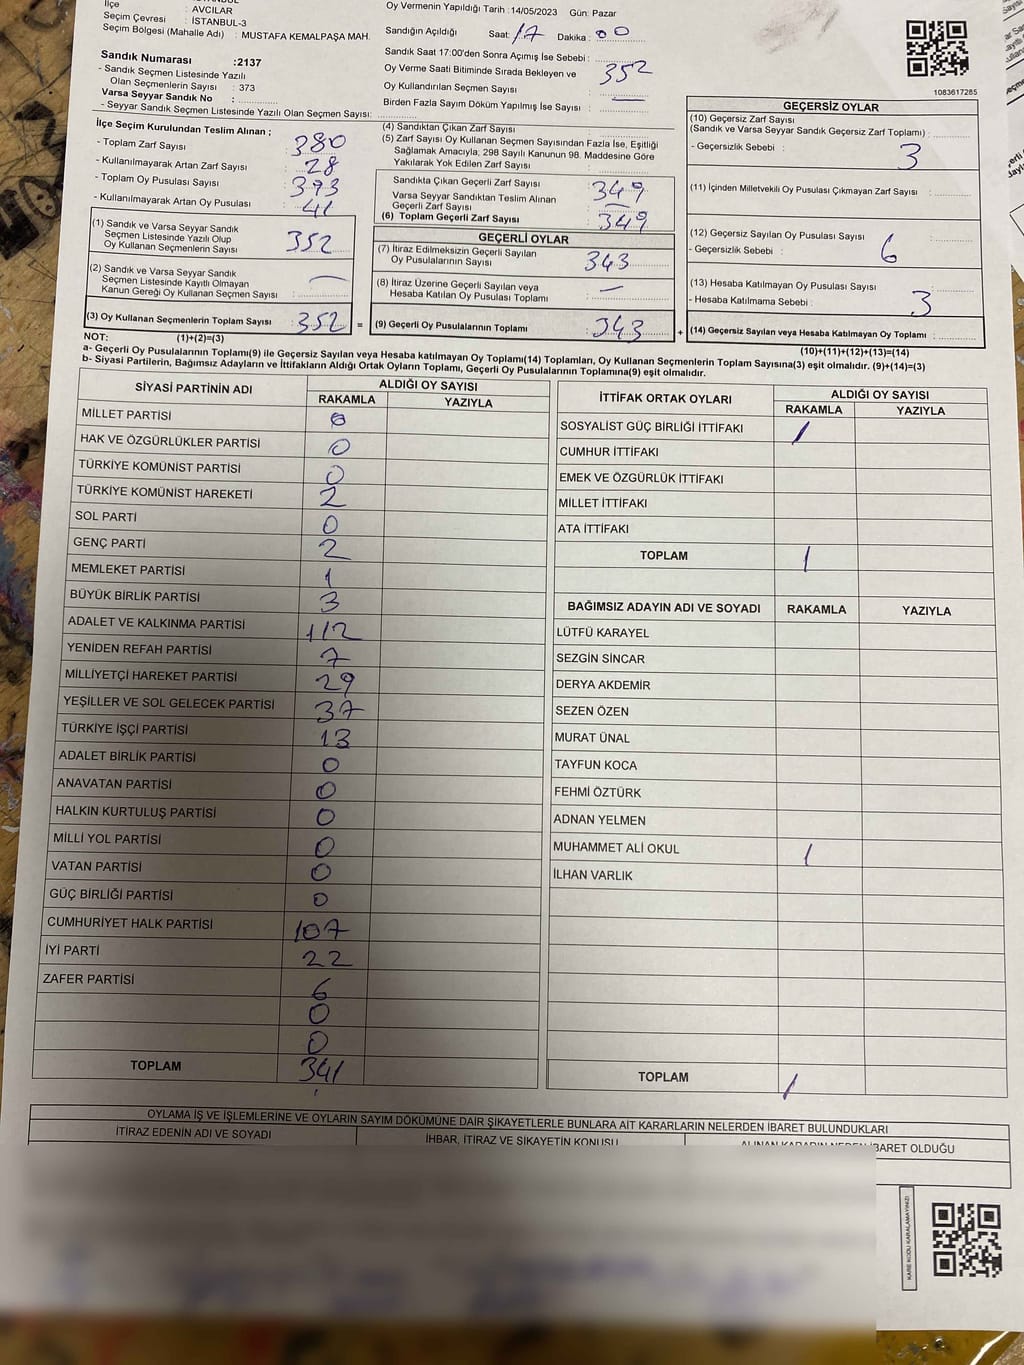 İlçe : AVCILAR
Seçim Çevresi : İSTANBUL-3
Seçim Bölgesi (Mahalle Adı) : MUSTAFA KEMALPAŞA MAH.
Oy Vermenin Yapıldığı Tarih :14/05/2023 Gün: Pazar
Sandığın Açıldığı Saat: 17 Dakika : 00
Sandık Saat 17:00'den Sonra Açımış İse Sebebi :
Oy Verme Saati Bitiminde Sırada Bekleyen ve
Oy Kullandırılan Seçmen Sayısı : 352
Birden Fazla Sayım Döküm Yapılmış İse Sayısı : —
Sandık Numarası :2137
- Sandık Seçmen Listesinde Yazılı
Olan Seçmenlerin Sayısı : 373
Varsa Seyyar Sandık No :
- Seyyar Sandık Seçmen Listesinde Yazılı Olan Seçmen Sayısı:
1083617285
İlçe Seçim Kurulundan Teslim Alınan ;
- Toplam Zarf Sayısı : 380
- Kullanılmayarak Artan Zarf Sayısı : 28
- Toplam Oy Pusulası Sayısı : 393
- Kullanılmayarak Artan Oy Pusulası : 41
(1) Sandık ve Varsa Seyyar Sandık
Seçmen Listesinde Yazılı Olup
Oy Kullanan Seçmenlerin Sayısı : 352
(2) Sandık ve Varsa Seyyar Sandık
Seçmen Listesinde Kayıtlı Olmayan
Kanun Gereği Oy Kullanan Seçmen Sayısı : —
(3) Oy Kullanan Seçmenlerin Toplam Sayısı : 352 =
(4) Sandıktan Çıkan Zarf Sayısı :
(5) Zarf Sayısı Oy Kullanan Seçmen Sayısından Fazla İse, Eşitliği
Sağlamak Amacıyla, 298 Sayılı Kanunun 98. Maddesine Göre
Yakılarak Yok Edilen Zarf Sayısı :
Sandıkta Çıkan Geçerli Zarf Sayısı : 349
Varsa Seyyar Sandıktan Teslim Alınan
Geçerli Zarf Sayısı : —
(6) Toplam Geçerli Zarf Sayısı : 349
GEÇERLİ OYLAR
(7) İtiraz Edilmeksizin Geçerli Sayılan
Oy Pusulalarının Sayısı : 343
(8) İtiraz Üzerine Geçerli Sayılan veya
Hesaba Katılan Oy Pusulası Toplamı : —
(9) Geçerli Oy Pusulalarının Toplamı : 343 +
GEÇERSİZ OYLAR
(10) Geçersiz Zarf Sayısı
(Sandık ve Varsa Seyyar Sandık Geçersiz Zarf Toplamı) :
- Geçersizlik Sebebi : 3
(11) İçinden Milletvekili Oy Pusulası Çıkmayan Zarf Sayısı :
(12) Geçersiz Sayılan Oy Pusulası Sayısı :
- Geçersizlik Sebebi : 6
(13) Hesaba Katılmayan Oy Pusulası Sayısı :
- Hesaba Katılmama Sebebi : 3
(14) Geçersiz Sayılan veya Hesaba Katılmayan Oy Toplamı :
NOT: (1)+(2)=(3) (10)+(11)+(12)+(13)=(14)
a- Geçerli Oy Pusulalarının Toplamı(9) ile Geçersiz Sayılan veya Hesaba katılmayan Oy Toplamı(14) Toplamları, Oy Kullanan Seçmenlerin Toplam Sayısına(3) eşit olmalıdır. (9)+(14)=(3)
b- Siyasi Partilerin, Bağımsız Adayların ve İttifakların Aldığı Ortak Oyların Toplamı, Geçerli Oy Pusulalarının Toplamına(9) eşit olmalıdır.
SİYASİ PARTİNİN ADI ALDIĞI OY SAYISI
RAKAMLA YAZIYLA
MİLLET PARTİSİ 0
HAK VE ÖZGÜRLÜKLER PARTİSİ 0
TÜRKİYE KOMÜNİST PARTİSİ 0
TÜRKİYE KOMÜNİST HAREKETİ 2
SOL PARTİ 0
GENÇ PARTİ 2
MEMLEKET PARTİSİ 1
BÜYÜK BİRLİK PARTİSİ 3
ADALET VE KALKINMA PARTİSİ 112
YENİDEN REFAH PARTİSİ 7
MİLLİYETÇİ HAREKET PARTİSİ 29
YEŞİLLER VE SOL GELECEK PARTİSİ 37
TÜRKİYE İŞÇİ PARTİSİ 13
ADALET BİRLİK PARTİSİ 0
ANAVATAN PARTİSİ 0
HALKIN KURTULUŞ PARTİSİ 0
MİLLİ YOL PARTİSİ 0
VATAN PARTİSİ 0
GÜÇ BİRLİĞİ PARTİSİ 0
CUMHURİYET HALK PARTİSİ 107
İYİ PARTİ 22
ZAFER PARTİSİ 6
0
0
TOPLAM 341
İTTİFAK ORTAK OYLARI ALDIĞI OY SAYISI
RAKAMLA YAZIYLA
SOSYALİST GÜÇ BİRLİĞİ İTTİFAKI 1
CUMHUR İTTİFAKI
EMEK VE ÖZGÜRLÜK İTTİFAKI
MİLLET İTTİFAKI
ATA İTTİFAKI
TOPLAM 1
BAĞIMSIZ ADAYIN ADI VE SOYADI RAKAMLA YAZIYLA
LÜTFÜ KARAYEL
SEZGİN SİNCAR
DERYA AKDEMİR
SEZEN ÖZEN
MURAT ÜNAL
TAYFUN KOCA
FEHMİ ÖZTÜRK
ADNAN YELMEN
MUHAMMET ALİ OKUL 1
İLHAN VARLIK
TOPLAM 1
OYLAMA İŞ VE İŞLEMLERİNE VE OYLARIN SAYIM DÖKÜMÜNE DAİR ŞİKAYETLERLE BUNLARA AİT KARARLARIN NELERDEN İBARET BULUNDUKLARI
İTİRAZ EDENİN ADI VE SOYADI İHBAR, İTİRAZ VE ŞİKAYETİN KONUSU ALINAN KARARIN NEDEN İBARET OLDUĞU
KARE KODU KARALAMAYINIZ!